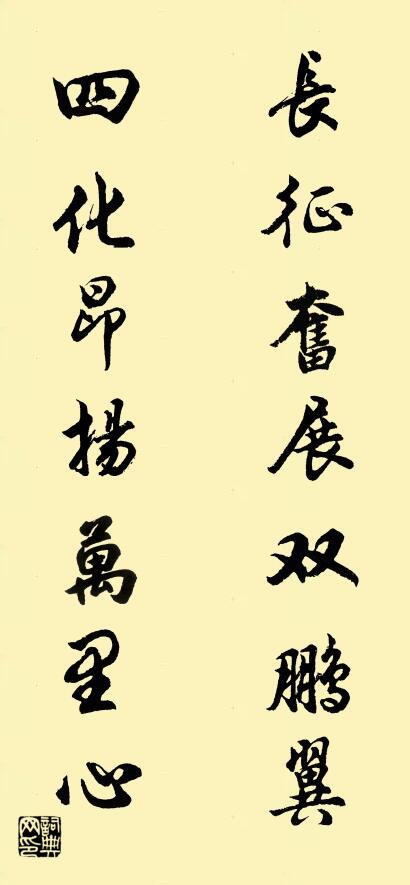 長征奮展双鵬翼
四化昂揚萬里心
詞典網印